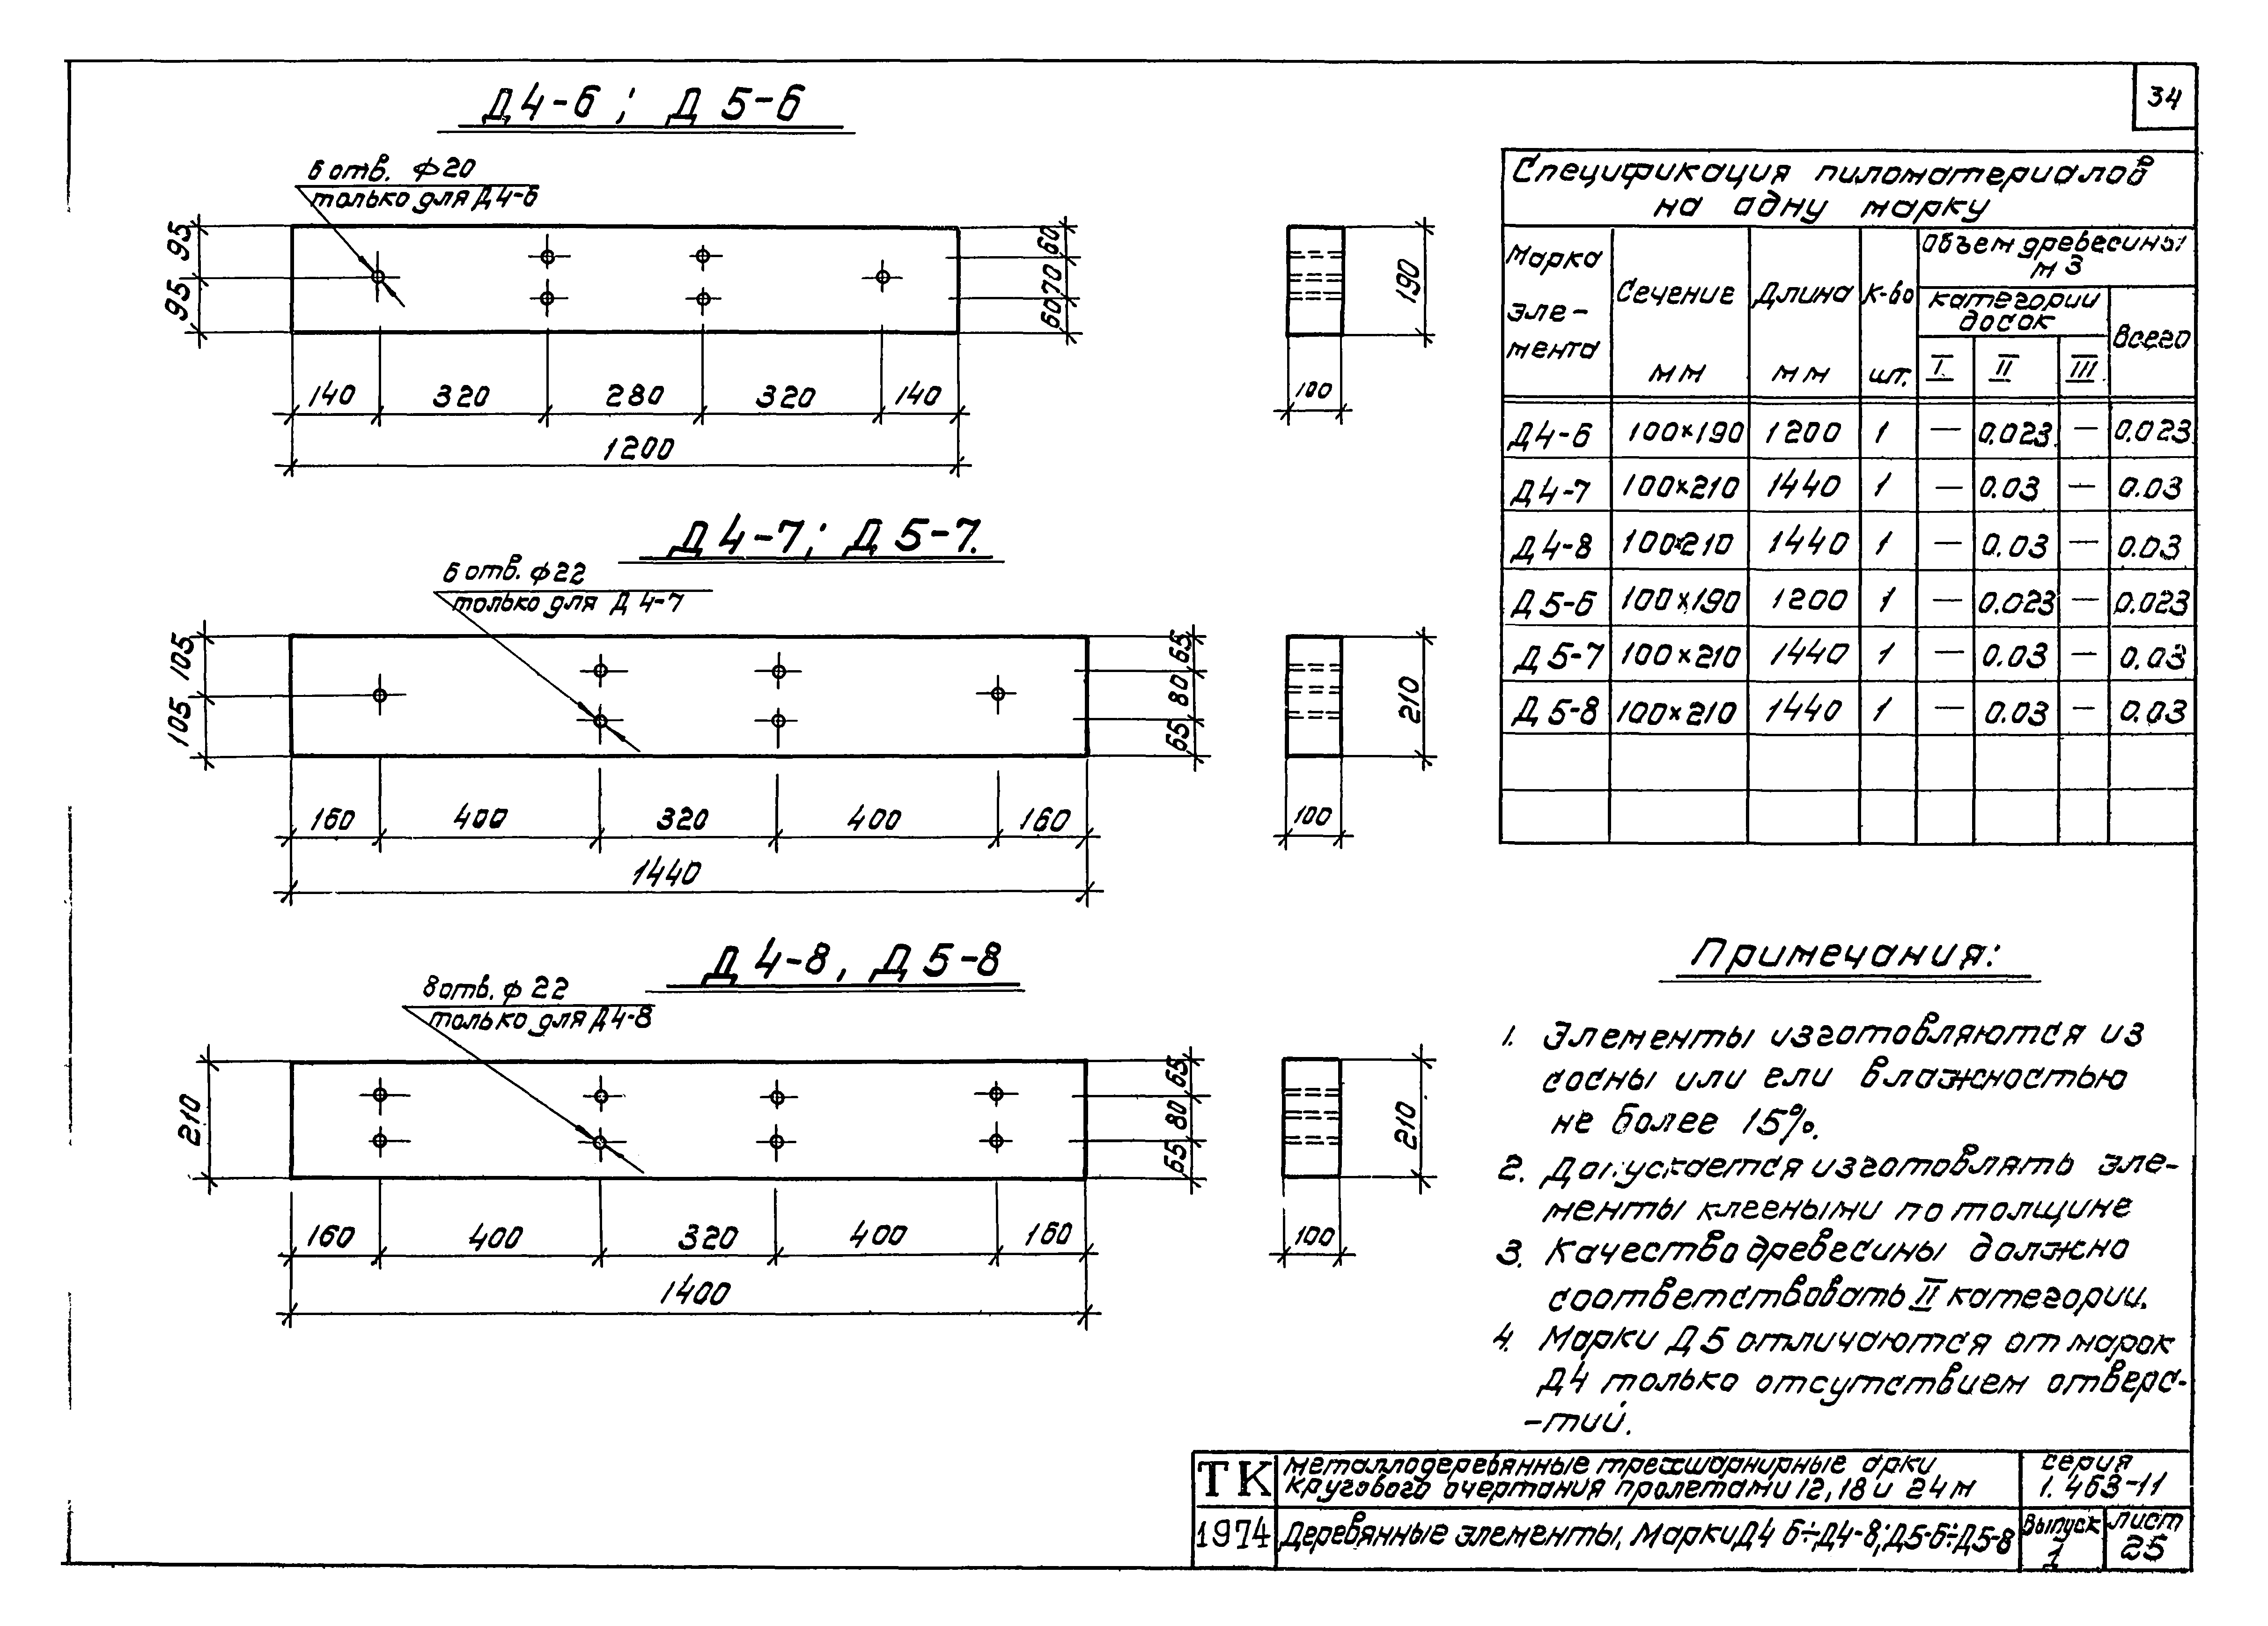 34
Д4-6 ; Д 5-6
6 отв. ф20
только для Д4-6
95
95
60
70
60
140 320 280 320 140
1200
190
100
Д 4-7; Д 5-7.
6 отв. ф22
только для Д 4-7
105
105
65
80
65
160 400 320 400 160
1440
210
100
Д 4-8, Д 5-8
8 отв. ф 22
только для Д4-8
210
65
80
65
160 400 320 400 160
1400
210
100
Спецификация пиломатериалов
на одну марку
Марка эле-мента
Сечение мм
Длина мм
К-во шт.
Объем древесины
м3
категории
досок
всего
I II III
Д4-6 100×190 1200 1 — 0.023 — 0.023
Д4-7 100×210 1440 1 — 0.03 — 0.03
Д4-8 100×210 1440 1 — 0.03 — 0.03
Д 5-6 100×190 1200 1 — 0.023 — 0.023
Д 5-7 100×210 1440 1 — 0.03 — 0.03
Д 5-8 100×210 1440 1 — 0.03 — 0.03
Примечания:
1. Элементы изготовляются из
сосны или ели влажностью
не более 15%.
2. Допускается изготовлять эле-
менты клееными по толщине
3. Качество древесины должно
соответствовать II категории.
4. Марки Д5 отличаются от марок
Д4 только отсутствием отверс-
-тий.
ТК
металлодеревянные трехшарнирные арки
кругового очертания пролетами 12, 18 и 24 м
серия
1.463-11
1974
Деревянные элементы. Марки Д4 6÷Д4-8; Д5-6÷Д5-8
Выпуск
1
лист
25